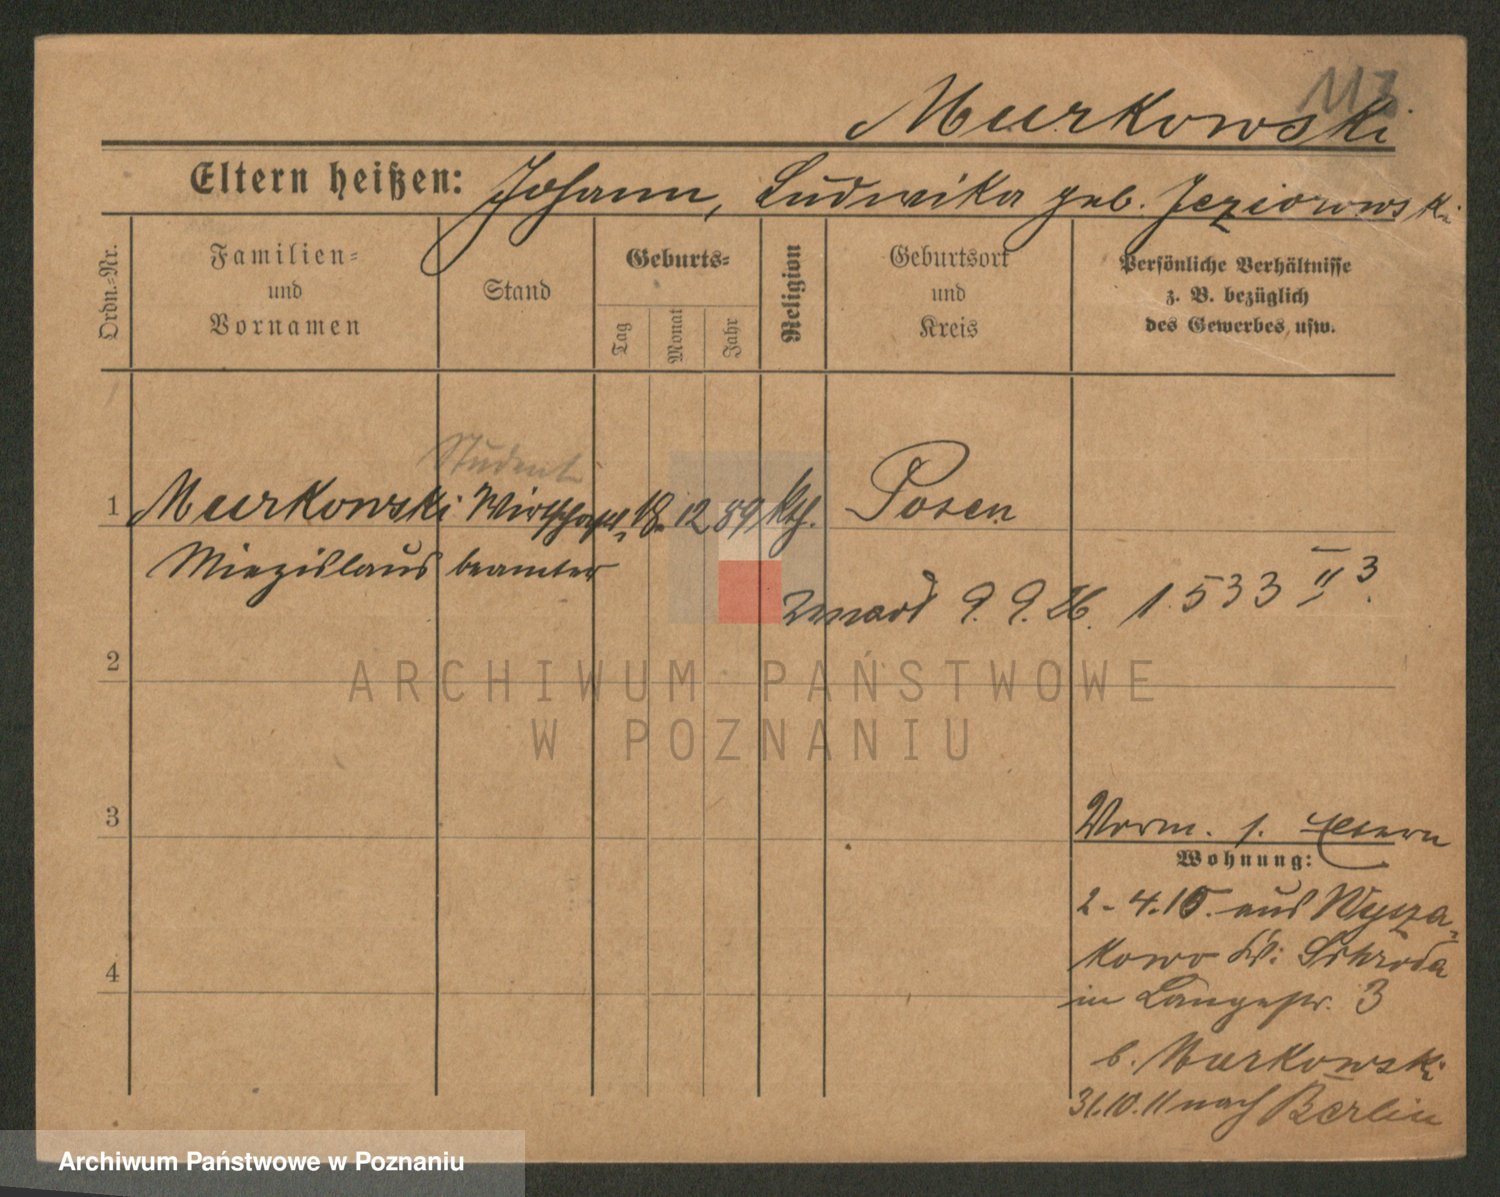 113
Murkowski
Eltern heißen: Johann, Ludwika geb. Jeziorowski
Ordn.-Nr.
Familien-
und
Vornamen
Stand
Geburts-
Tag
Monat
Jahr
Religion
Geburtsort
und
Kreis
Persönliche Verhältnisse
z. B. bezüglich
des Gewerbes usw.
Student
1 Murkowski Wirtschafts- 18. 12 89 kth. Posen
Miezislaus beamter
9. 9. 26. 1.533 II 3.
2
ARCHIWUM PAŃSTWOWE
W POZNANIU
3
Vorm. s. Eltern
Wohnung:
2-4.10. aus Wysza-
kowo Kr: Schroda
4
in Langestr. 3
b. Murkowski
31.10.11 nach Berlin
Archiwum Państwowe w Poznaniu